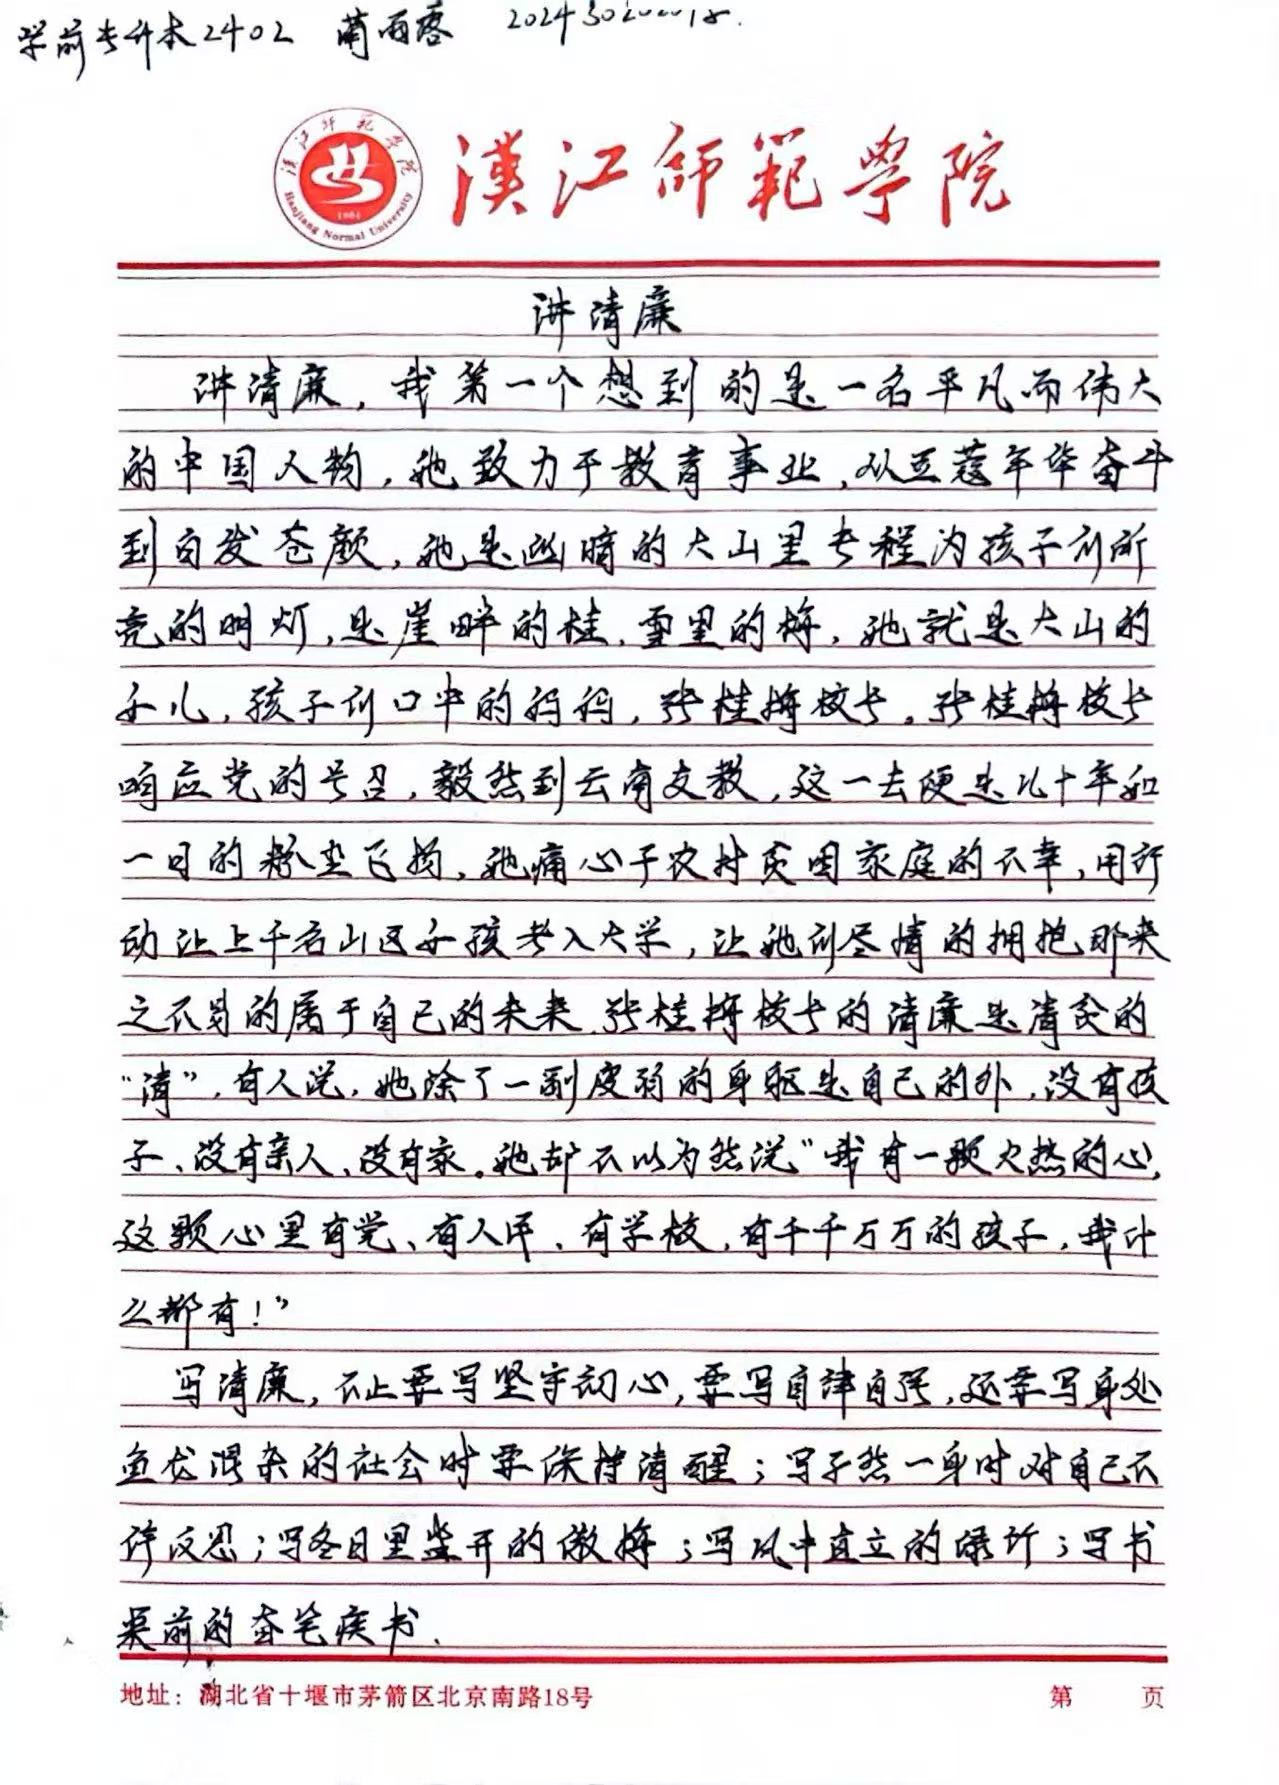 学前专升本2402 蔺雨露
汉江师范学院
Hanjiang Normal University
1904
漢江师範學院
讲清廉
讲清廉，我第一个想到的是一名平凡而伟大
的中国人物，她致力于教育事业，从豆蔻年华奋斗
到白发苍颜，她是幽暗的大山里专程为孩子们所
亮的明灯，是崖畔的桂，雪里的梅，她就是大山的
女儿，孩子们口中的妈妈，张桂梅校长。张桂梅校长
响应党的号召，毅然到云南支教，这一去便是几十年如
一日的粉尘飞扬，她痛心于农村贫困家庭的不幸，用行
动让上千名山区女孩考入大学，让她们尽情的拥抱那来
之不易的属于自己的未来。张桂梅校长的清廉是清贫的
“清”，有人说，她除了一副疲弱的身躯是自己的外，没有孩
子、没有亲人、没有家。她却不以为然说“我有一颗火热的心，
这颗心里有党、有人民、有学校，有千千万万的孩子，我什
么都有！”
写清廉，不止要写坚守初心，要写自律自强，还要写身处
鱼龙混杂的社会时要保持清醒；写孑然一身时对自己不
许反思；写冬日里盛开的傲梅；写风中直立的绿竹；写书
桌前的奋笔疾书.
地址：湖北省十堰市茅箭区北京南路18号 第 页